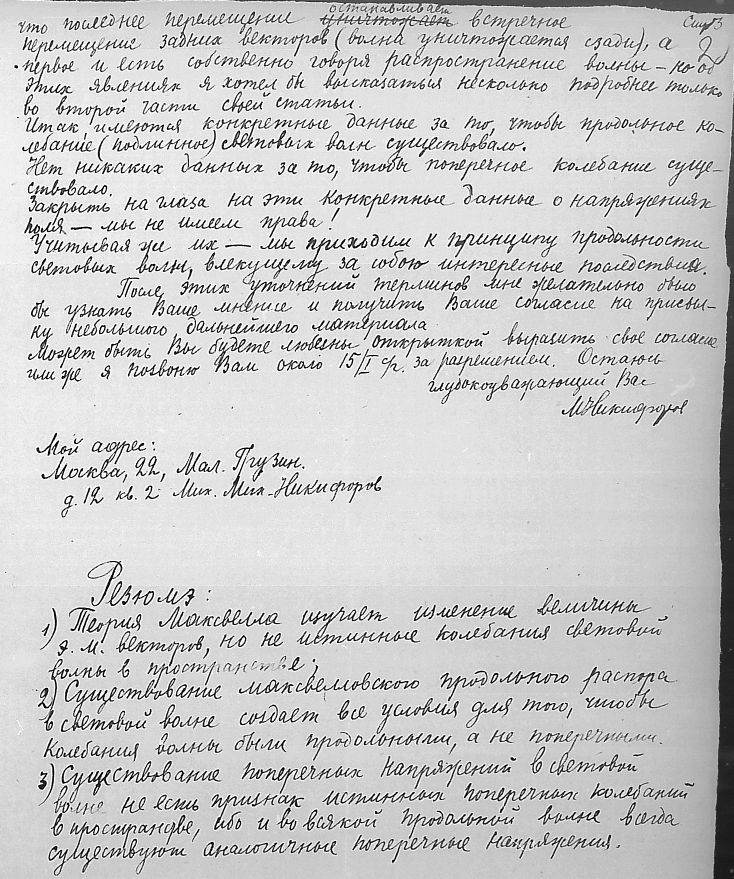 что последнее перемещении останавливает уничтожает встречное
Стр 3
перемещение задних векторов (волна уничтожается сзади), а
первое и есть собственно говоря распространение волны – но об
этих явлениях я хотел бы высказаться несколько подробнее только
во второй части своей статьи.
Итак имеются конкретные данные за то, чтобы продольное ко-
лебание (подлинное) световых волн существовало.
Нет никаких данных за то, чтобы поперечное колебание суще-
ствовало.
Закрыть на глаза на эти конкретные данные о напряжениях
поля – мы не имеем права!
Учитывая же их – мы приходим к принципу продольности
световых волн, влекущему за собою интересные последствия.
После этих уточнений терминов мне желательно было
бы узнать Ваше мнение и получить Ваше согласие на присыл-
ку небольшого дальнейшего материала
Может быть Вы будете любезны открыткой выразить свое согласие
или же я позвоню Вам около 15/I ср. за разрешением. Остаюсь
глубокоуважающий Вас
МНикифоров
Мой адрес:
Москва, 22, Мал. Грузин.
д. 12 кв. 2 Мих. Мих. Никифоров
Резюмэ:
1) Теория Максвелла изучает изменение величины
э. м. векторов, но не истинные колебания световой
волны в пространстве;
2) Существование максвелловского продольного распора
в световой волне создает все условия для того, чтобы
колебания волны были продольными, а не поперечными.
3) Существование поперечных напряжений в световой
волне не есть признак истинных поперечных колебаний
в пространстве, ибо и во всякой продольной волне всегда
существуют аналогичные поперечные напряжения.